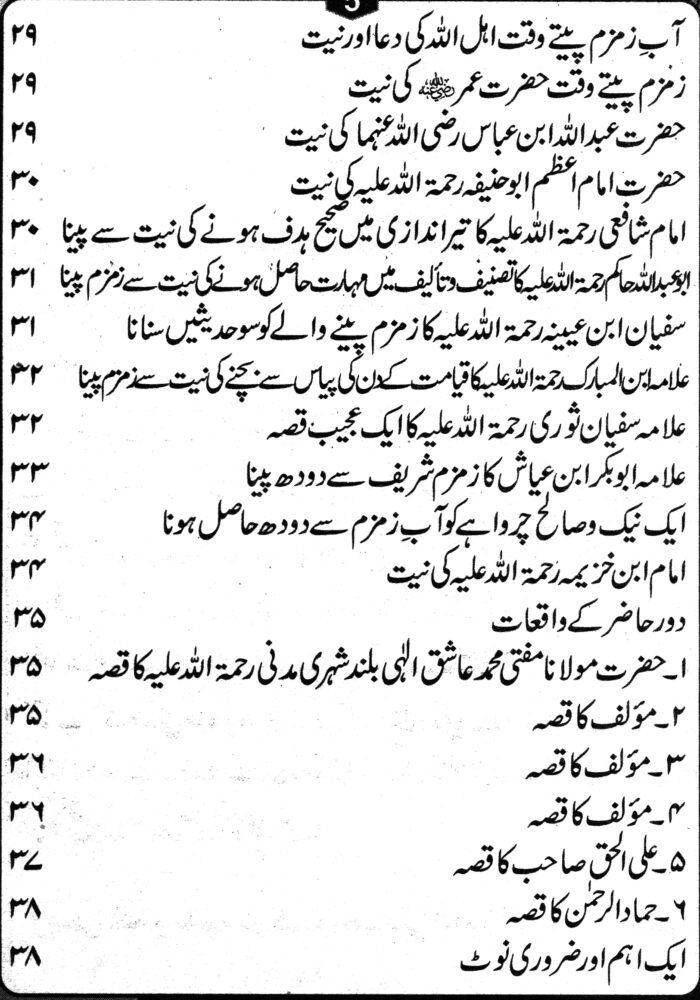 5
آبِ زمزم پیتے وقت اہل اللہ کی دعا اور نیت ۲۹
زمزم پیتے وقت حضرت عمر رضی اللہ عنہ کی نیت ۲۹
حضرت عبداللہ ابن عباس رضی اللہ عنہما کی نیت ۲۹
حضرت امام اعظم ابو حنیفہ رحمۃ اللہ علیہ کی نیت ۳۰
امام شافعی رحمۃ اللہ علیہ کا تیر اندازی میں صحیح ہدف ہونے کی نیت سے پینا ۳۰
ابو عبداللہ حاکم رحمۃ اللہ علیہ کا تصنیف و تألیف میں مہارت حاصل ہونے کی نیت سے زمزم پینا ۳۱
سفیان ابن عیینہ رحمۃ اللہ علیہ کا زمزم پینے والے کو سو حدیثیں سنانا ۳۱
علامہ ابن المبارک رحمۃ اللہ علیہ کا قیامت کے دن کی پیاس سے بچنے کی نیت سے زمزم پینا ۳۲
علامہ سفیان ثوری رحمۃ اللہ علیہ کا ایک عجیب قصہ ۳۲
علامہ ابوبکر ابن عیاش کا زمزم شریف سے دودھ پینا ۳۳
ایک نیک و صالح چرواہے کو آبِ زمزم سے دودھ حاصل ہونا ۳۴
امام ابن خزیمہ رحمۃ اللہ علیہ کی نیت ۳۴
دور حاضر کے واقعات ۳۵
۱۔ حضرت مولانا مفتی محمد عاشق الٰہی بلند شہری مدنی رحمۃ اللہ علیہ کا قصہ ۳۵
۲۔ مؤلف کا قصہ ۳۵
۳۔ مؤلف کا قصہ ۳۶
۴۔ مؤلف کا قصہ ۳۶
۵۔ علی الحق صاحب کا قصہ ۳۷
۶۔ حماد الرحمٰن کا قصہ ۳۸
ایک اہم اور ضروری نوٹ ۳۸